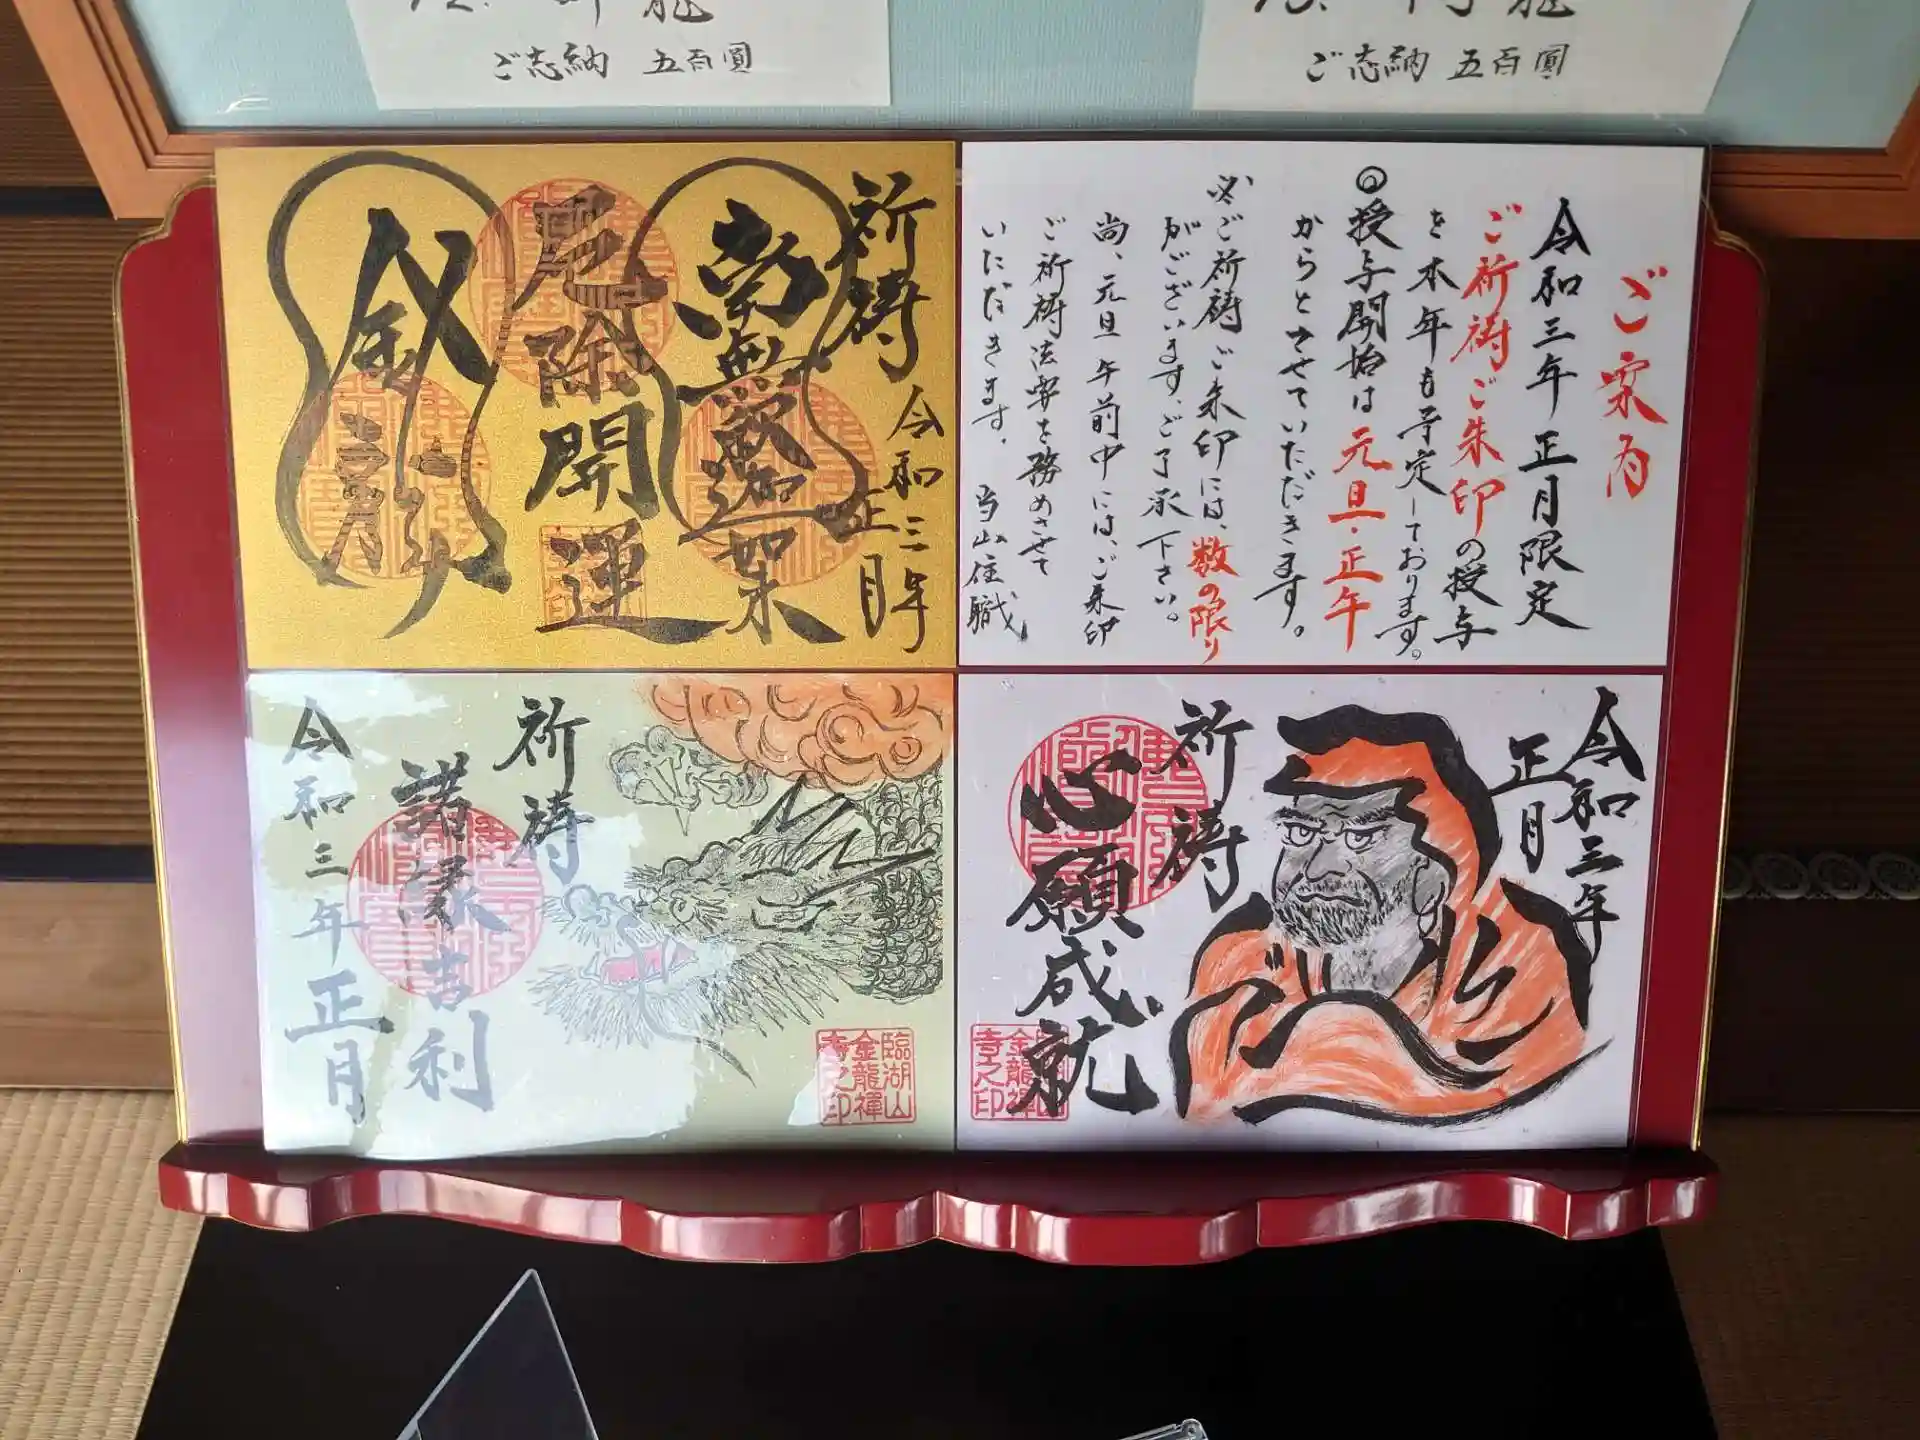 ご志納 五百圓
ご志納 五百圓
ご案内
令和三年 正月限定
ご祈祷ご朱印の授与
を本年も予定しております。
◎授与開始は元旦・正午
からとさせていただきます。
※ご祈祷ご朱印には、数の限り
がございます、ご了承下さい。
尚、元旦午前中には、ご朱印
ご祈祷法要を務めさせて
いただきます。
当山住職
祈祷
令和三年
正月
南無釈迦如来
厄除開運
金龍
令和三年
正月
祈祷
心願成就
金龍禅
寺之印
祈祷
諸縁吉利
令和三年正月
臨湖山
金龍禅
寺之印